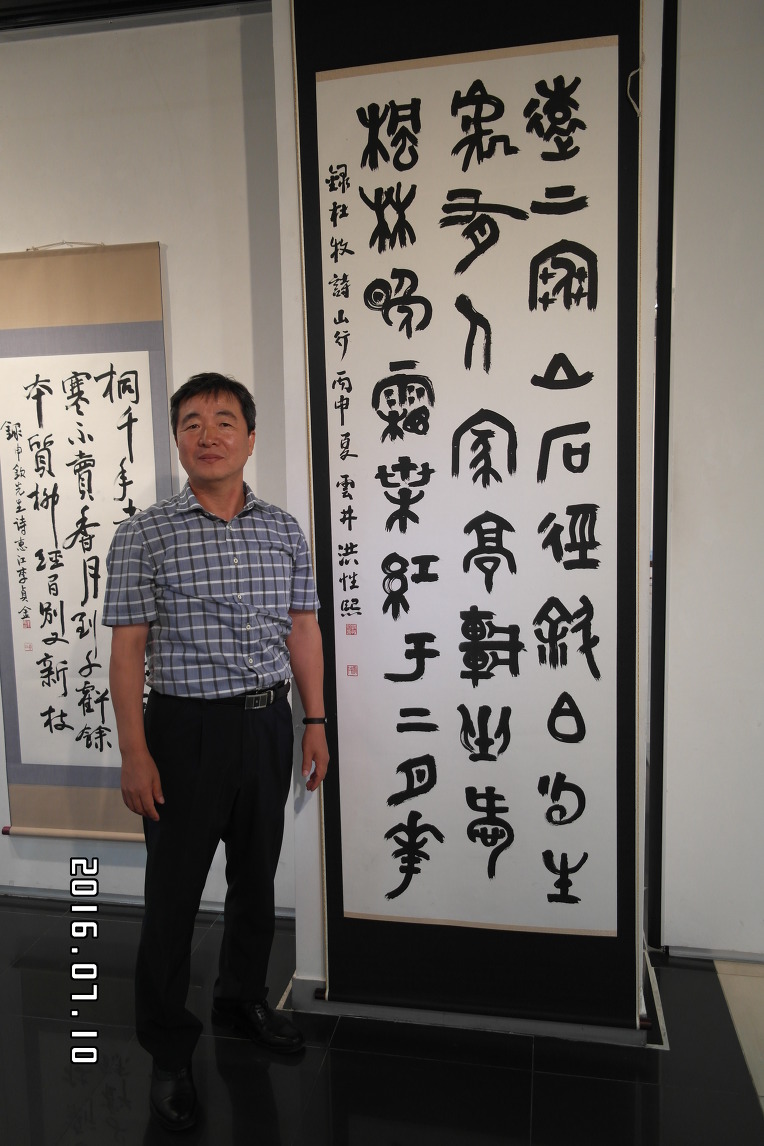 遠上寒山石徑斜白雲生
處有人家亭車坐愛
楓林晚霜葉紅于二月華
錄杜牧詩山行 丙申夏 雲井 洪性熙
桐千年
寒不賣香月到千虧餘
本質柳經百別又新枝
錄申欽先生詩 惠江李貞金
2016.07.10